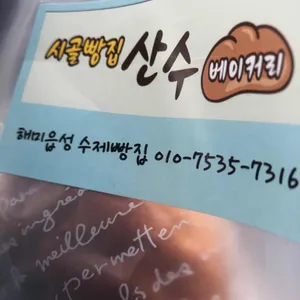 시골빵집 산수 베이커리
해미읍성 수제빵집 010-7535-7316
Para
meilleure
permetten
ls des